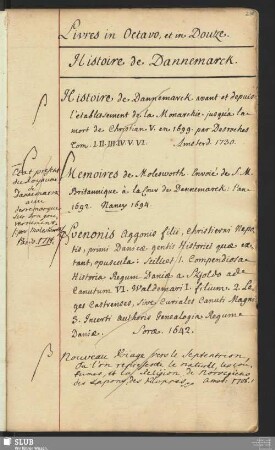 Livres in Octavo, et in Douze.
Histoire de Dannemarck.
Histoire de Dannemarck avant et depuis
l'etablissement de la Monarchie jusqu'a la
mort de Christian V. en 1699. par Desroches
Tom. I. II. III. IV. V. VI. Amsterd. 1730.
Memoires de Molesworth Envoié de S. M.
Britannique à la Cour de Dannemarck l'an
1692 Nancy 1694
Suenonis Aggonis filii, Christierni Nepo-
tis, primi Daniæ gentis Historici quæ ex-
tant, opuscula. Scilicet, 1. Compendiosa
Historia Regum Daniæ a Skjoldo ad
Canutum VI. Waldemari I. filium. 2. Le-
ges Castrenses, sive Curiales Canuti Magni
3. Incerti Authoris Genealogia Regum
Daniæ. Soræ. 1642.
Nouveau Voiage vers le Septentrion,
où l'on represente le naturel, les cou-
tumes, et la Religion de Norwegiens
des Lapons, des
Etat present
de
Dannemarck
SLUB
Wir führen Wissen.